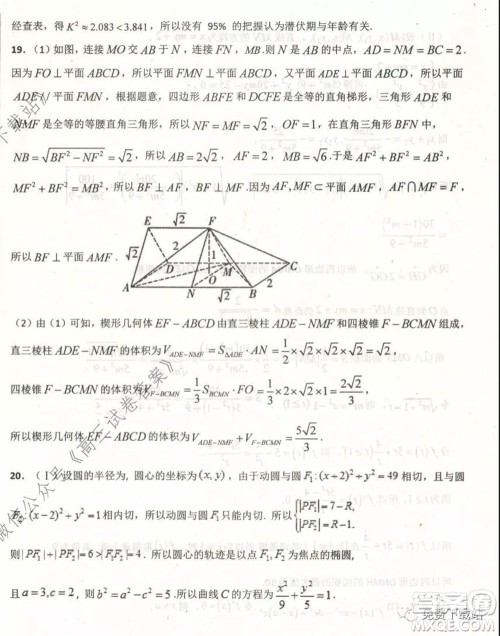 经查表，得 K² ≈ 2.083 < 3.841，所以没有 95% 的把握认为潜伏期与年龄有关.
19.（1）如图，连接 MO 交 AB 于 N，连接 FN，MB.则 N 是 AB 的中点，AD = NM = BC = 2.
因为 FO ⊥ 平面 ABCD，所以平面 FMN ⊥ 平面 ABCD，又平面 ADE ⊥ 平面 ABCD，所以平面
ADE // 平面 FMN，根据题意，四边形 ABFE 和 DCFE 是全等的直角梯形，三角形 ADE 和
NMF 是全等的等腰直角三角形，所以 NF = MF = √2，OF = 1，在直角三角形 BFN 中，
NB = √(BF² − NF²) = √2，所以 AB = 2√2，AF = 2，MB = √6.于是 AF² + BF² = AB²，
MF² + BF² = MB²，所以 BF ⊥ AF，BF ⊥ MF.因为 AF, MF ⊂ 平面 AMF，AF ∩ MF = F，
E √2 F
√2 2 1 2
D M C
O
A N √2 B
所以 BF ⊥ 平面 AMF.
（2）由（1）可知，楔形几何体 EF − ABCD 由直三棱柱 ADE − NMF 和四棱锥 F − BCMN 组成，
直三棱柱 ADE − NMF 的体积为 V_{ADE−NMF} = S_{ΔADE} · AN = 1/2 × √2 × √2 × √2 = √2，
四棱锥 F − BCMN 的体积为 V_{F−BCMN} = 1/3 S_{BCMN} · FO = 1/3 × 2 × √2 × 1 = 2√2/3，
所以楔形几何体 EF − ABCD 的体积为 V_{ADE−NMF} + V_{F−BCMN} = 5√2/3.
20.（Ⅰ）设圆的半径为, 圆心的坐标为 (x, y)，由于动圆与圆 F₁: (x + 2)² + y² = 49 相切，且与圆
F₂: (x − 2)² + y² = 1 相内切，所以动圆与圆只能内切. 所以 { |PF₁| = 7 − R, |PF₂| = R − 1.
则 |PF₁| + |PF₂| = 6 > |F₁F₂| = 4. 所以圆心的轨迹是以点 F₁, F₂ 为焦点的椭圆,
且 a = 3, c = 2，则 b² = a² − c² = 5. 所以曲线 C 的方程为 x²/9 + y²/5 = 1.
微信公众号《高三试卷答案》
下载站》
免费下载站
答案圈
MXQE.COM